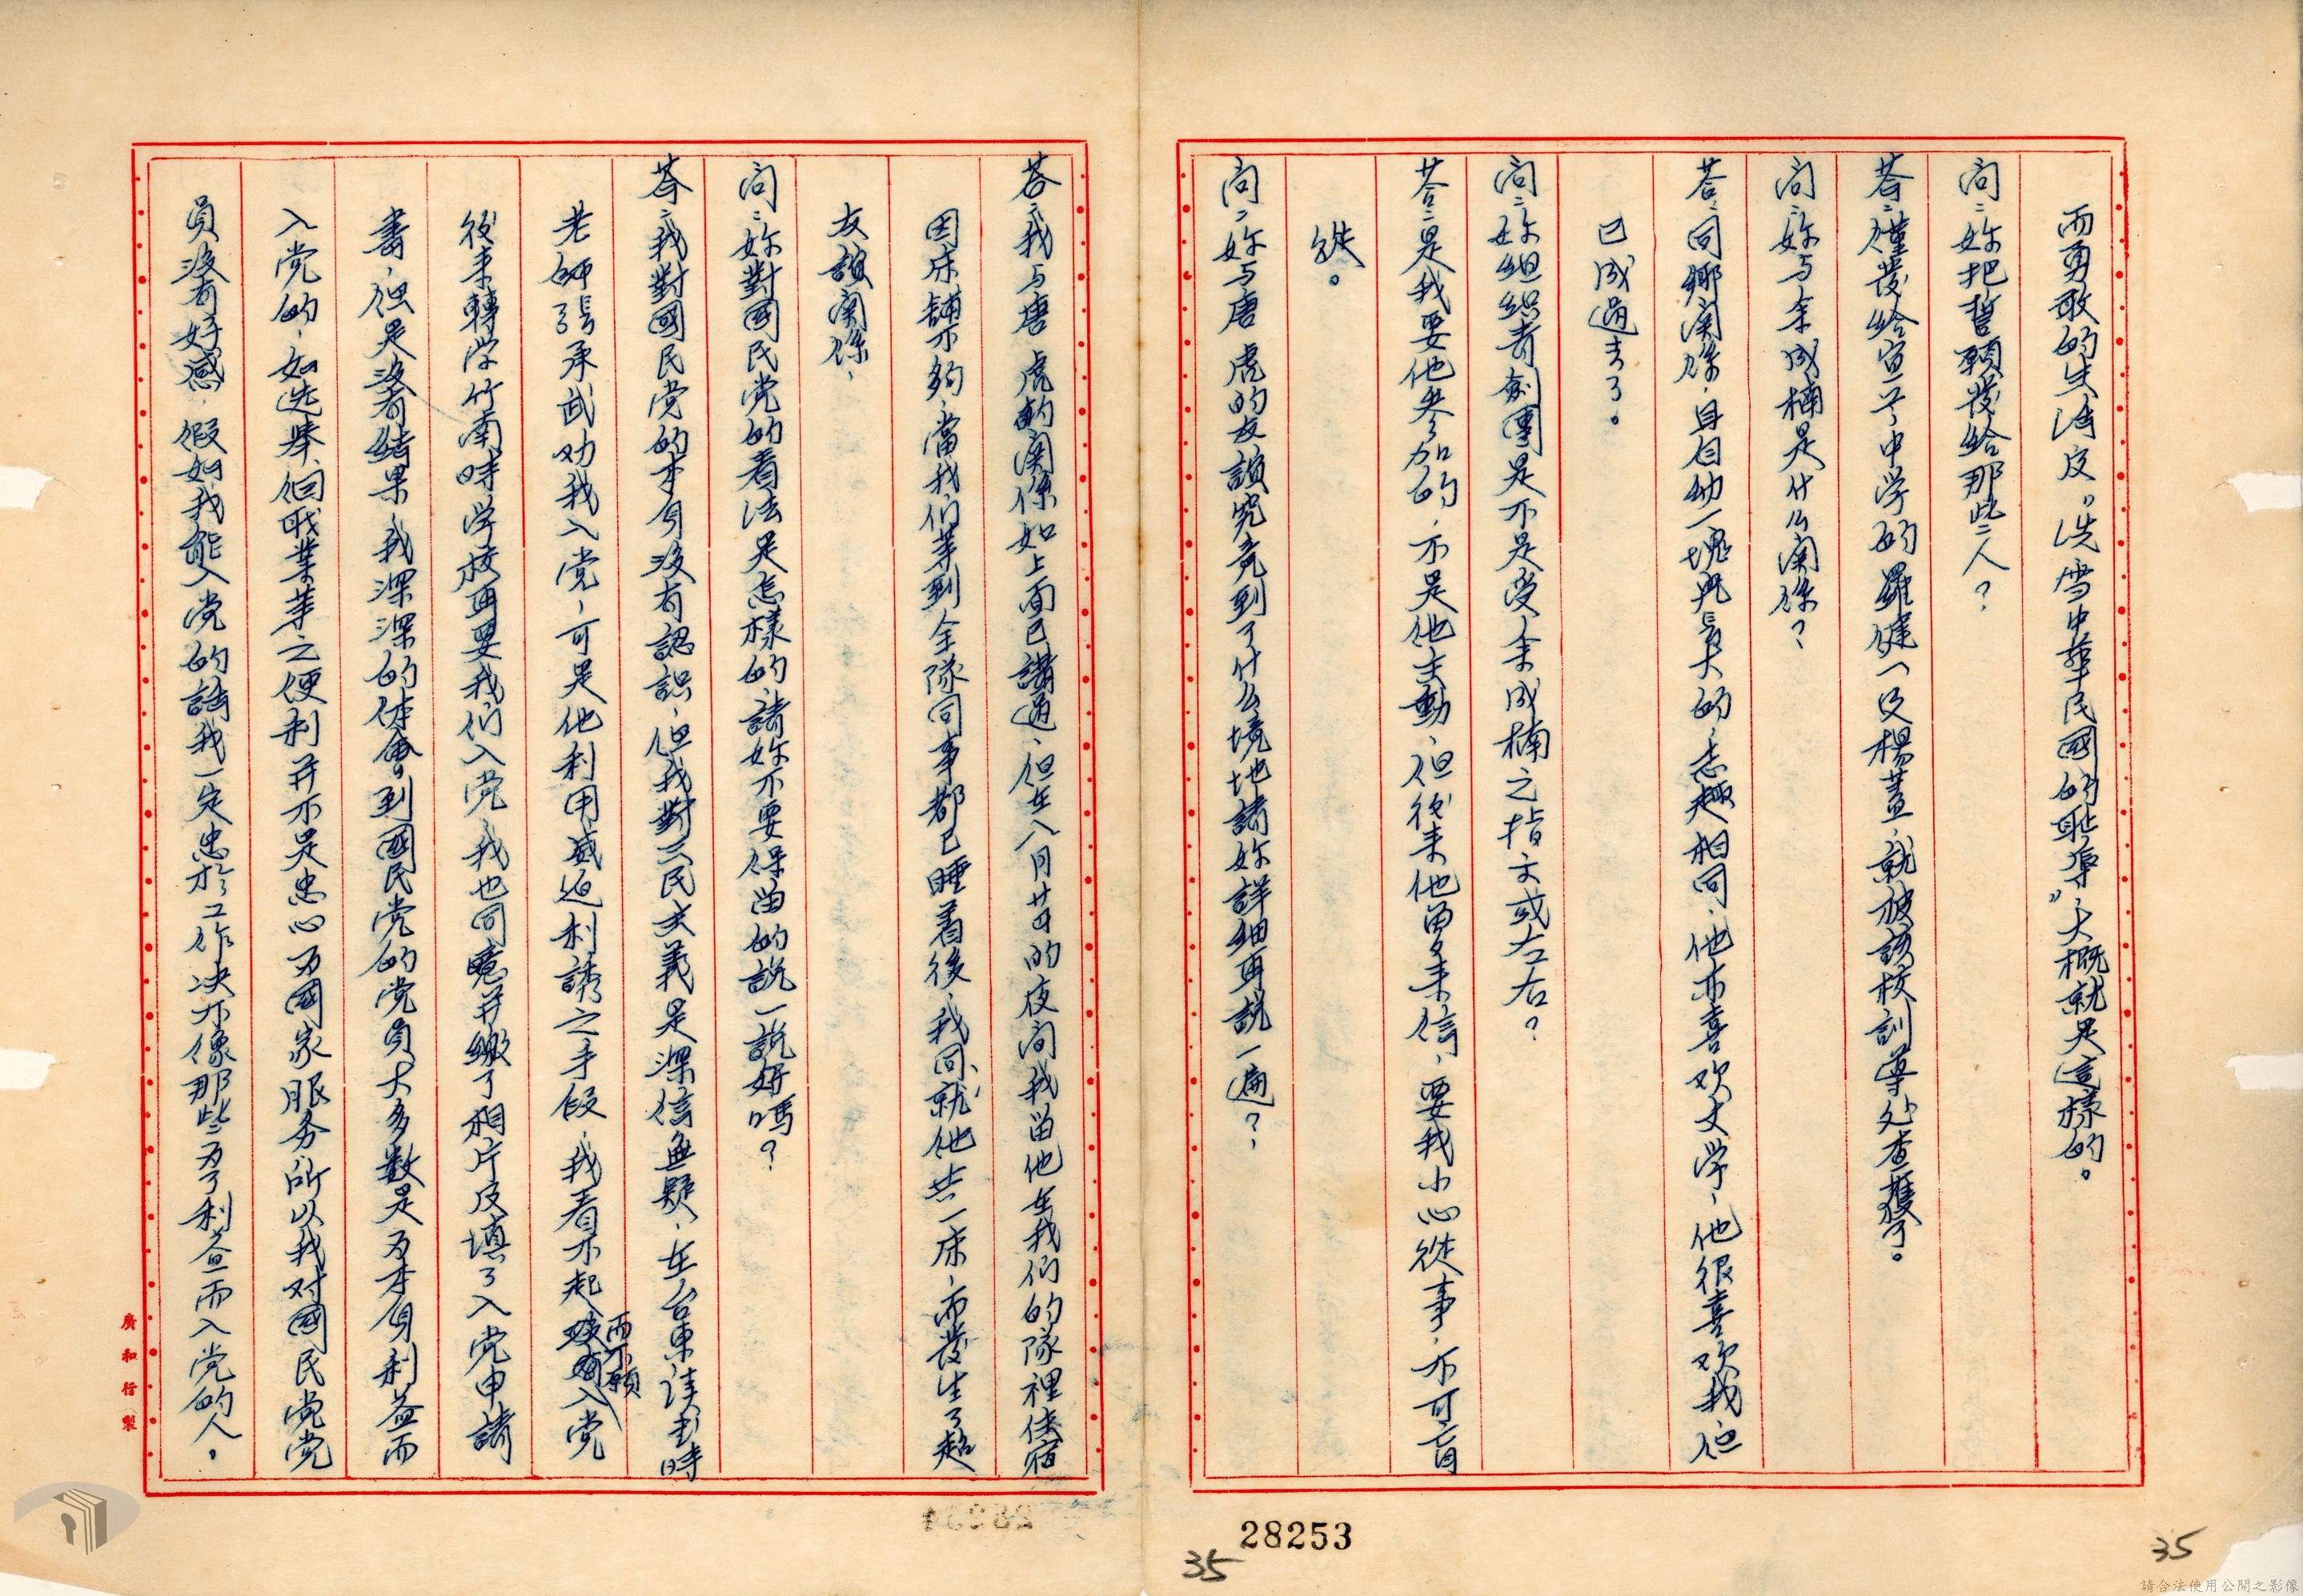 而勇敢的生活及〝洗雪中華民國的恥辱〞，大概就是這樣的。
問：妳把誓願發給那些人？
荅：僅發給宜二中学的羅健一及楊蓋，就被該校訓導处查獲了。
問：妳与余成楠是什么関係？
荅：同鄉関係，且自幼一塊兒長大的，志趣相同，他亦喜欢文学，他很喜欢我，但
已成過去了。
問：妳組織青剑團是不是受余成楠之指文或左右？
荅：是我要他参加的，不是他主動，但後来他曾多来信，要我小心從事，不可盲
從。
問：妳与唐 虎的友誼究竟到了什么境地請妳詳細再說一遍？
荅：我与唐 虎的関係如上面已講過，但在八月廿日的夜间我留他在我们的隊裡住宿
因床舖不夠，當我们等到全隊同事都已睡着後，我同就他共一床，而發生了超
友誼関係，
問：妳對國民党的看法是怎樣的，請妳不要保留的說一說好嗎？
荅：我對國民党的本身没有認識，但我對三民主義是深信無疑，在台東讀書時
老師張承武劝我入党，可是他利用威迫利誘之手段，我看不起而不願入党
後来轉学竹南時学校再要我们入党，我也同意并繳了相片及填了入党申請
書，但是没有結果，我深深的体會到國民党的党員大多数是为本身利益而
入党的，如选举、個職業等之便利并不是忠心为國家服务所以我对國民党党
員没有好感，假如我能入党的話我一定忠於工作决不像那些为了利益而入党的人，
廣和行製
28253
35
35
請合法使用公開之影像